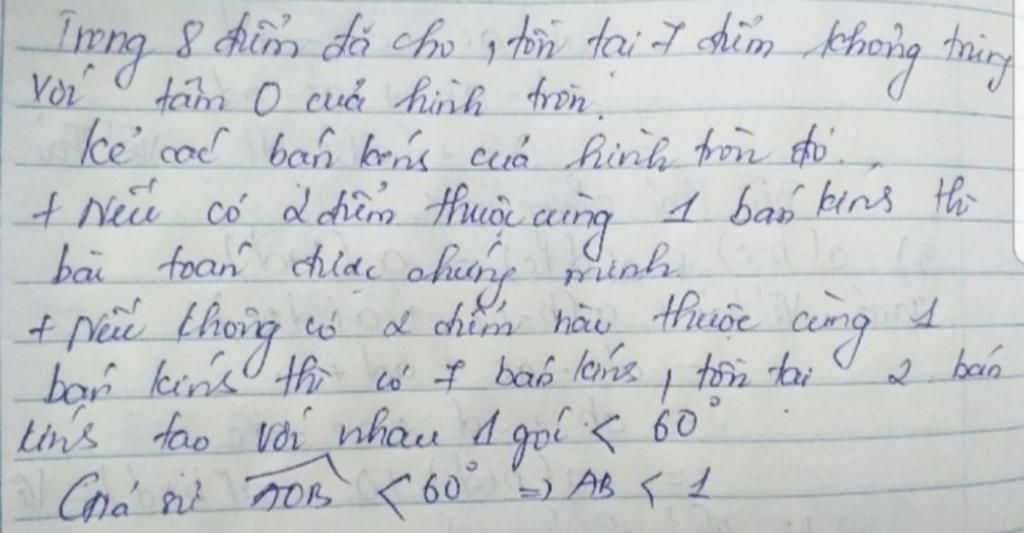 Trong 8 điểm đã cho, tồn tại 7 điểm không trùng
với tâm O của hình tròn.
Kẻ các bán kính của hình tròn đó.
+ Nếu có 2 điểm thuộc cùng 1 bán kính thì
bài toán được chứng minh
+ Nếu không có 2 điểm nào thuộc cùng 1
bán kính thì có 7 bán kính, tồn tại 2 bán
kính tạo với nhau 1 góc < 60°
Giả sử AOB < 60° => AB < 1